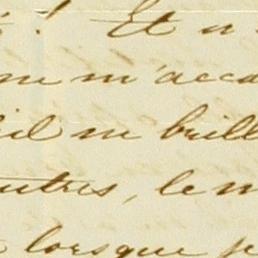 ! Et n
me m'acca
il ne brill
autres, le m
lorsque je